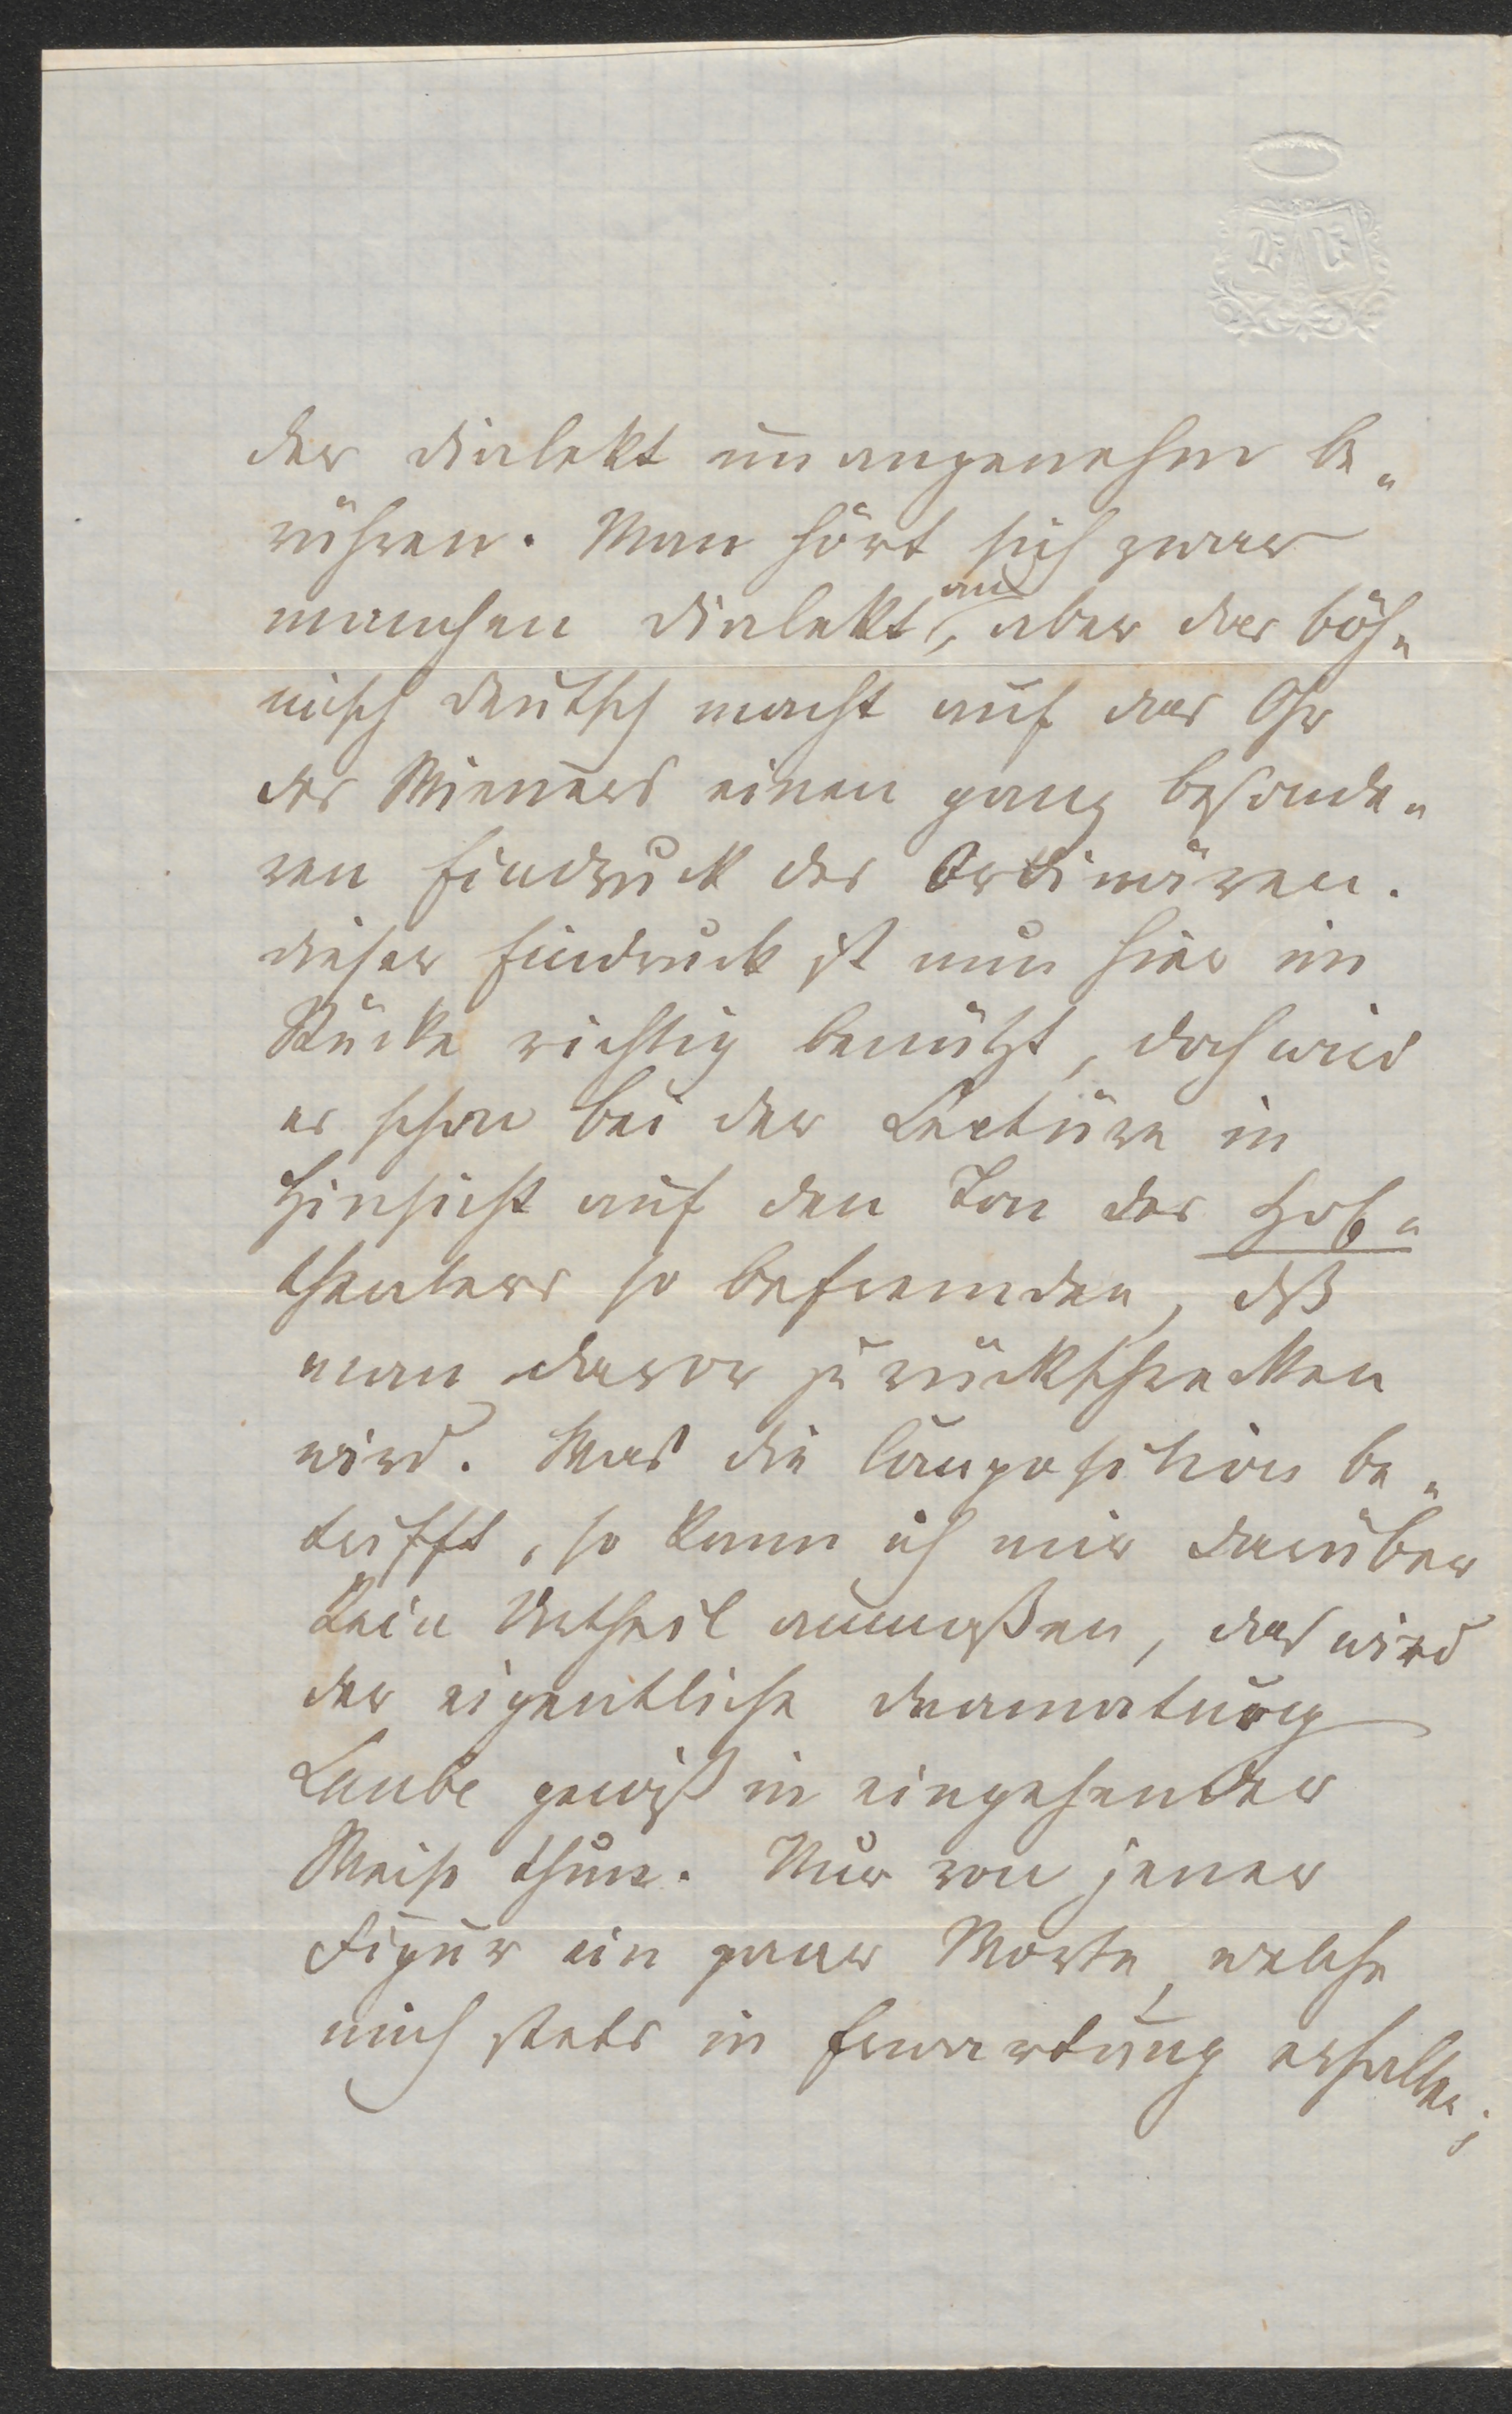 der Dialekt unangenehm be„
rühren. Man hört sich zwar
manchen Dialekt an, aber das böh„
misch deutsch macht auf das Ohr
des Wieners einen ganz besonde„
ren Eindruck des Ordinären.
Dieser Eindruck ist nun hier im
Stücke richtig benützt, doch wird
er schon bei der Lectüre in
Hinsicht auf den Ton des Hof„
theaters so befremden, dß
man davor zurückschrecken
wird. Was die Composition be„
trifft, so kann ich mir darüber
kein Urtheil anmaßen, das wird
der eigentliche Dramaturg
Laube gewiß in eingehender
Weise thun. Nur von jener
Figur ein paar Worte, welche
mich stets in Erwartung erhalten;